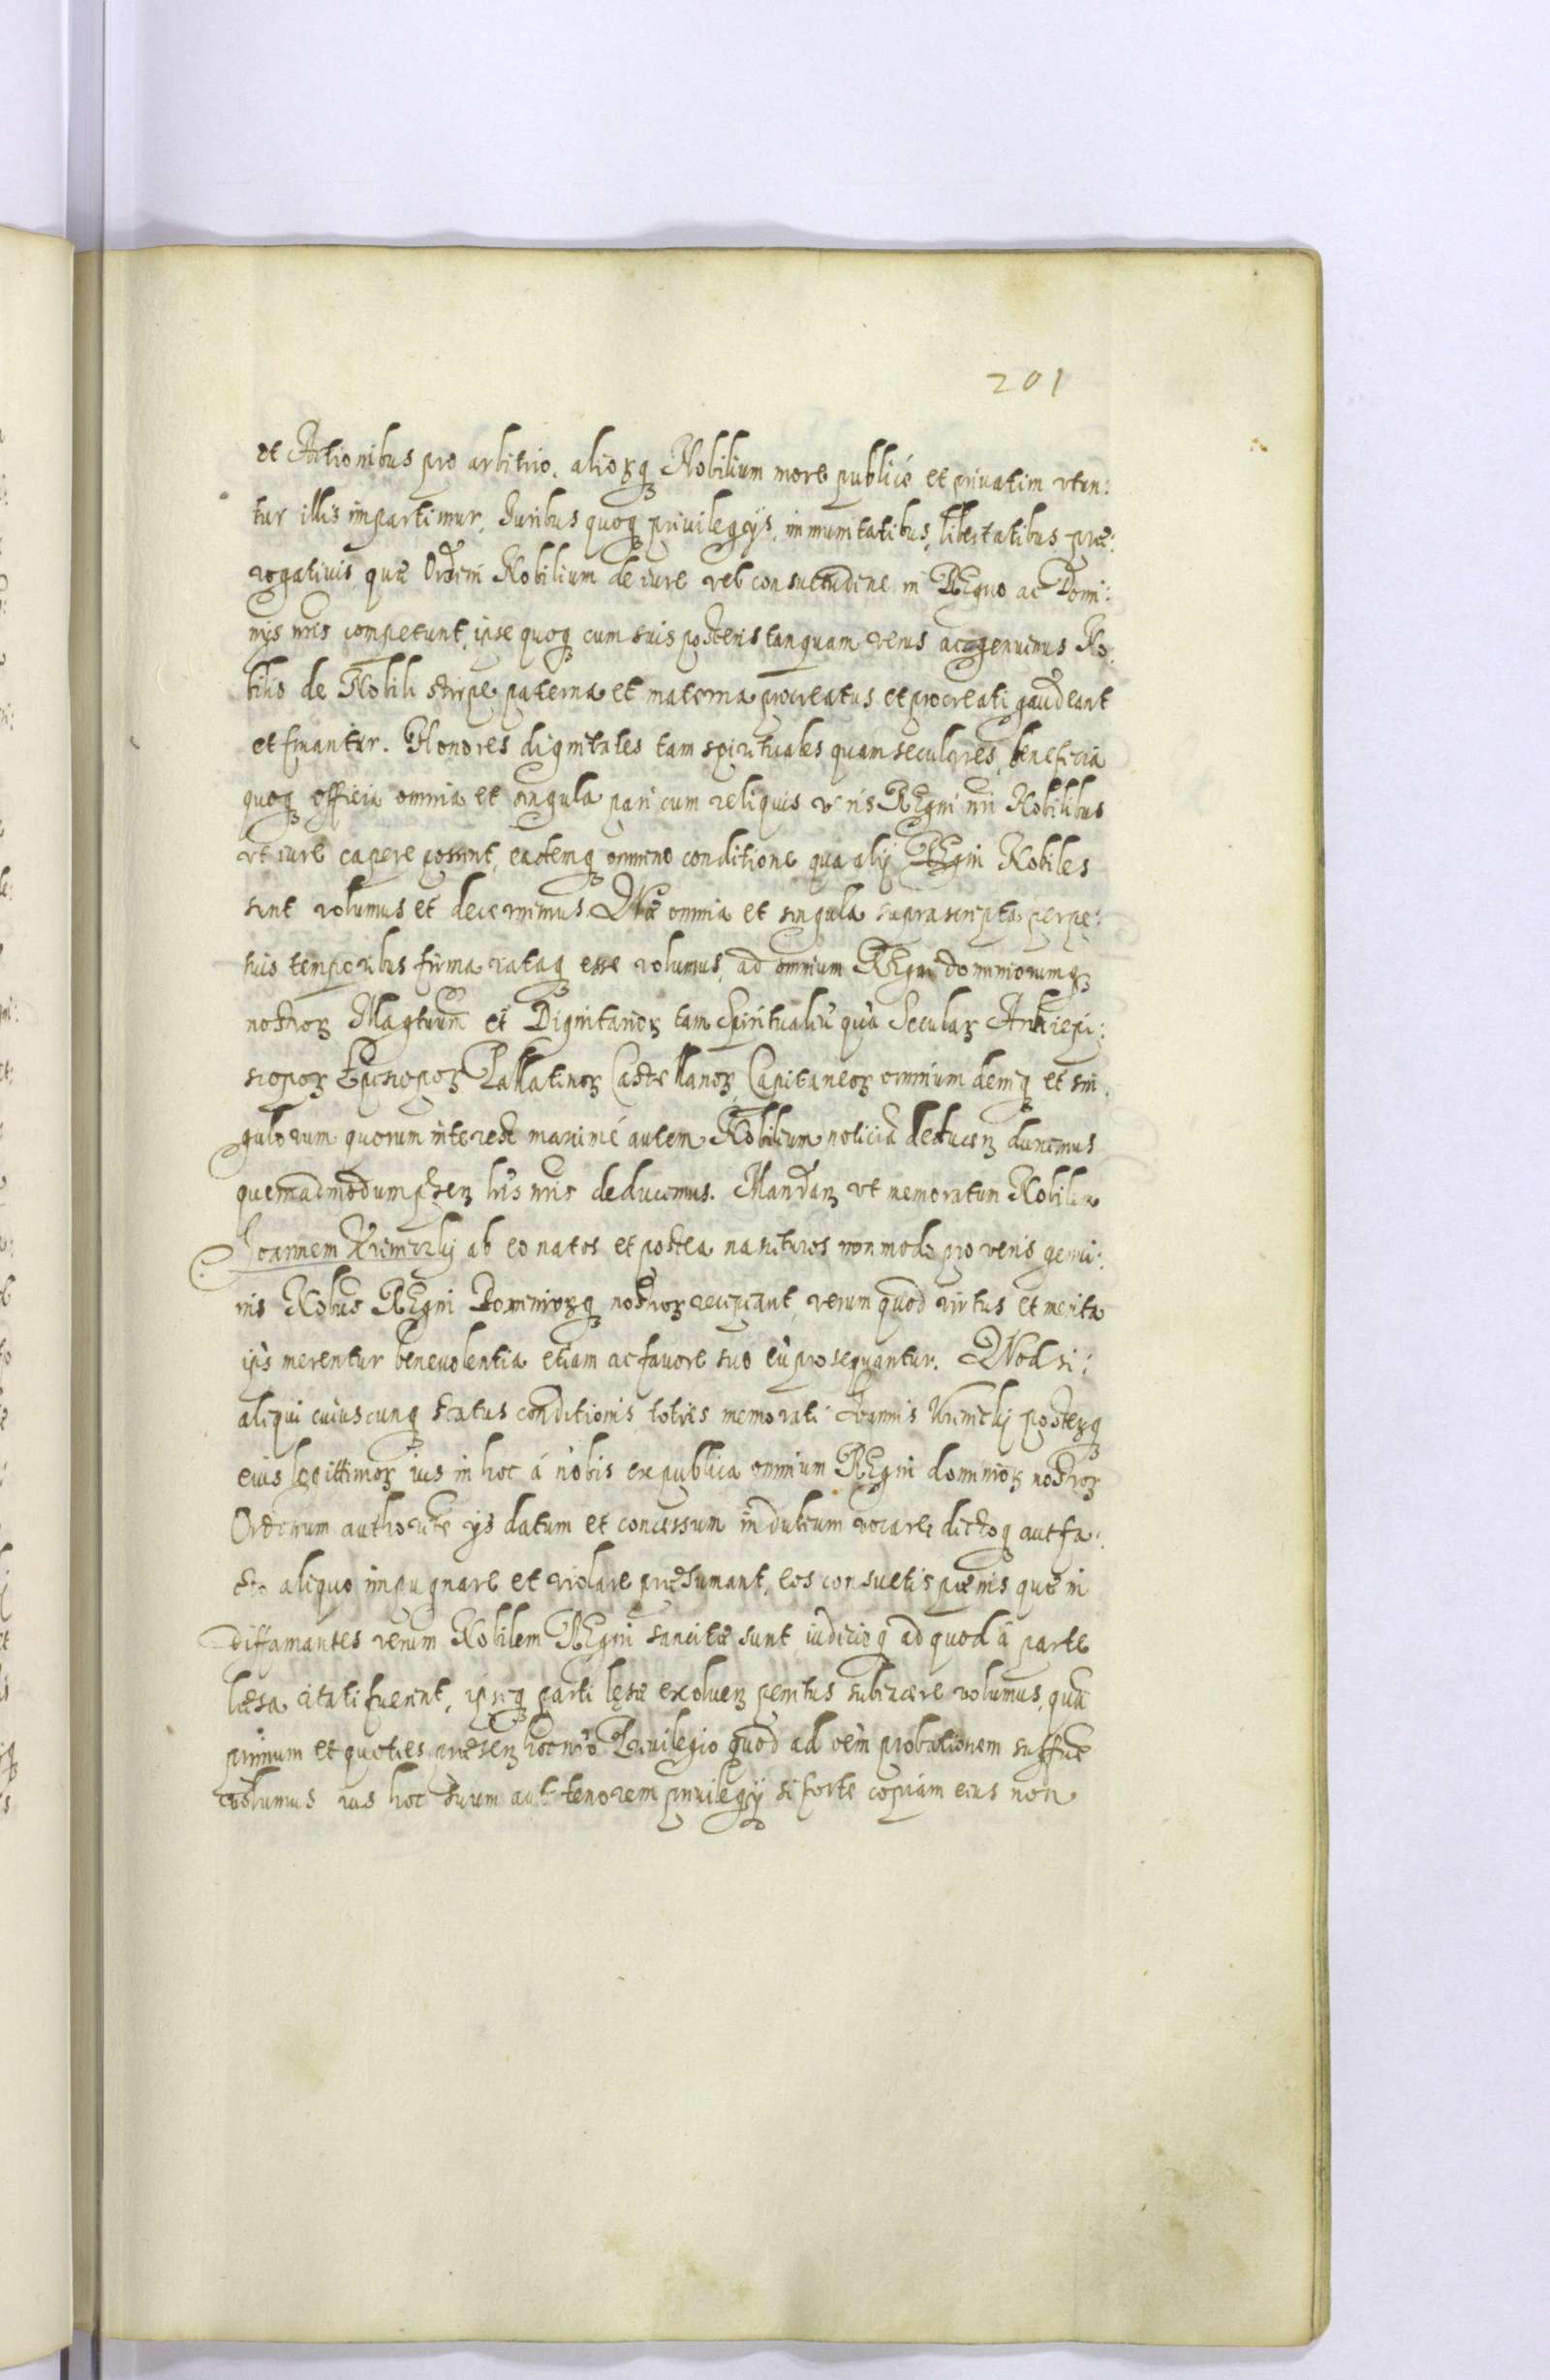 201
et Actionibus pro arbitrio, aliorꝫq Nobilium more publicé et priuatim vtun:
tur illis impartimur, Iuribus quoqꝫ priuilegijs, immunitatibus, libertatibus præ:
rogatiuis quæ Ordini Nobilium de iure vel consuetudine in REgno ac Domi:
nijs nris competunt, ipse quoqꝫ cum suis posteris tanquam verus ac genuinus No:
bilis de Nobili stirpe paterna et materna procreatus et procreati gaudeant
et fruantur. Honores dignitates tam spirituales quam seculares, beneficia
quoqꝫ officia omnia et singula pari cum reliquis veris REgni nri Nobilibus
vt iure capere possint, eademqꝫ omnino conditione qua alij REgni Nobiles
sint volumus et decernimus. Quæ omnia et singula suprascripta perpe:
tuis temporibus firma rataqꝫ esse volumus, ad omnium REgni dominiorumqꝫ
nostroꝝ Magtuum et Dignitarioꝝ tam Spiritualiũ quã Seculaꝝ Archiepi:
scopoꝝ Episcopoꝝ Pallatinoꝝ Castellanoꝝ, Capitaneoꝝ omnium deniqꝫ et sin:
gulorum quorum interest maximé autem Nobilium noticiã deducenꝫ duximus
quemadmodum pñsenꝫ lris nris deducimus. Mandanꝫ vt memoratum Nobilem
Joannem Krzimiczkij ab eo natos et postea nascituros non modo pro veris genui:
nis Nobus REgni Dominiorꝫq nostroꝝ recipiant, verum quod virtus et merita
ipis merentur beneuolentia etiam ac fauore suo eũ prosequantur. Quod si:
aliqui cuiuscunqꝫ status conditionis, toties memorati Ioannis Krzimiczkij posterꝫq
eius legittimoꝝ ius in hoc á nobis ex publica omnium REgni dominioꝝ nostroꝝ
Ordinum authoritate ijs datum et concessum indultum vocare dictoqꝫ aut fa:
cto aliquo impugnare et violare præsumant, eos consuetis pœnis quæ in
diffamantes verum Nobilem REgni sancitæ sunt, iudicioqꝫ ad quod á parte
læsa citati fuerint, ipsiqꝫ parti lęsæ exoluenꝫ penitus subiacere volumus, quã
primum et quoties præsenꝫ hoc nro Priuilegio quod ad vẽm probationem suffue
volumus ius hoc suum aut tenorem priuilegij si forte copiam eius non